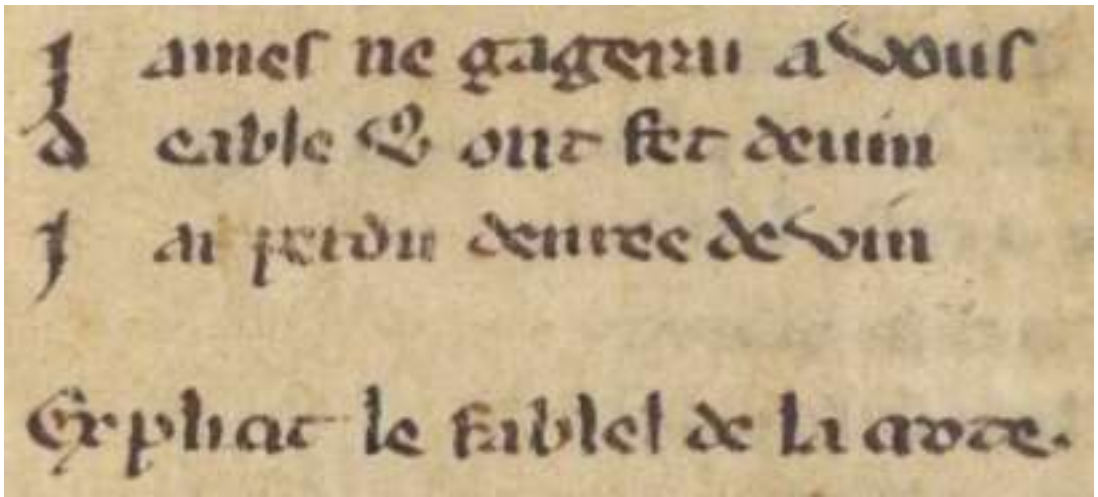 J ames ne gagerai a vous
d eable & ont fet deuin
J ai perdu denree de vin
Explicit le fablel de la crote.